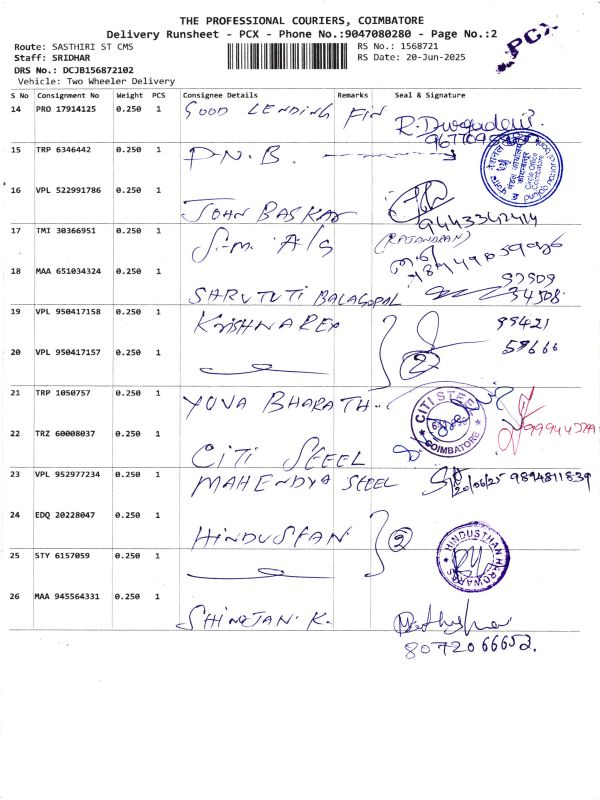 THE PROFESSIONAL COURIERS, COIMBATORE
Delivery Runsheet - PCX - Phone No.:9047080280 - Page No.:2
PCX
Route: SASTHIRI ST CMS
RS No.: 1568721
Staff: SRIDHAR
RS Date: 20-Jun-2025
DRS No.: DCJB156872102
Vehicle: Two Wheeler Delivery
S No Consignment No Weight PCS Consignee Details Remarks Seal & Signature
14 PRO 17914125 0.250 1 GOOD LENDING FIN R. Durgadevi
15 TRP 6346442 0.250 1 P.N.B.
16 VPL 522991786 0.250 1 JOHN BASKAR 9443342414
(RAJANDRAN)
17 TMI 30366951 0.250 1 S.M. A/G
18 MAA 651034324 0.250 1 SHRUTUTI BALAGOPAL 97509
34508.
19 VPL 950417158 0.250 1 KRISHNAREX 99421
20 VPL 950417157 0.250 1 2 59666
21 TRP 1050757 0.250 1 YUVA BHARATH.
CITI STEEL
COIMBATORE
22 TRZ 60008037 0.250 1 CITI STEEL
23 VPL 952977234 0.250 1 MAHENDYA STEEL 20/06/25 9894811839
24 EDQ 20228047 0.250 1 HINDUSTAN 2
HINDUSTHAN HEROWARE
25 STY 6157059 0.250 1
26 MAA 945564331 0.250 1 SHINOJAN. K.
8072066652.